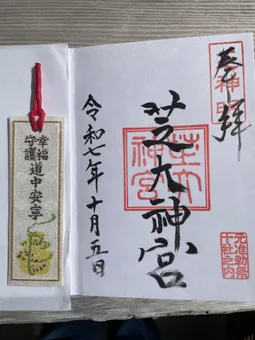 奉拝
神明
芝大神宮
芝大神宮
元准勅祭
十社之内
令和七年十月五日
幸福
守護
道中安寧